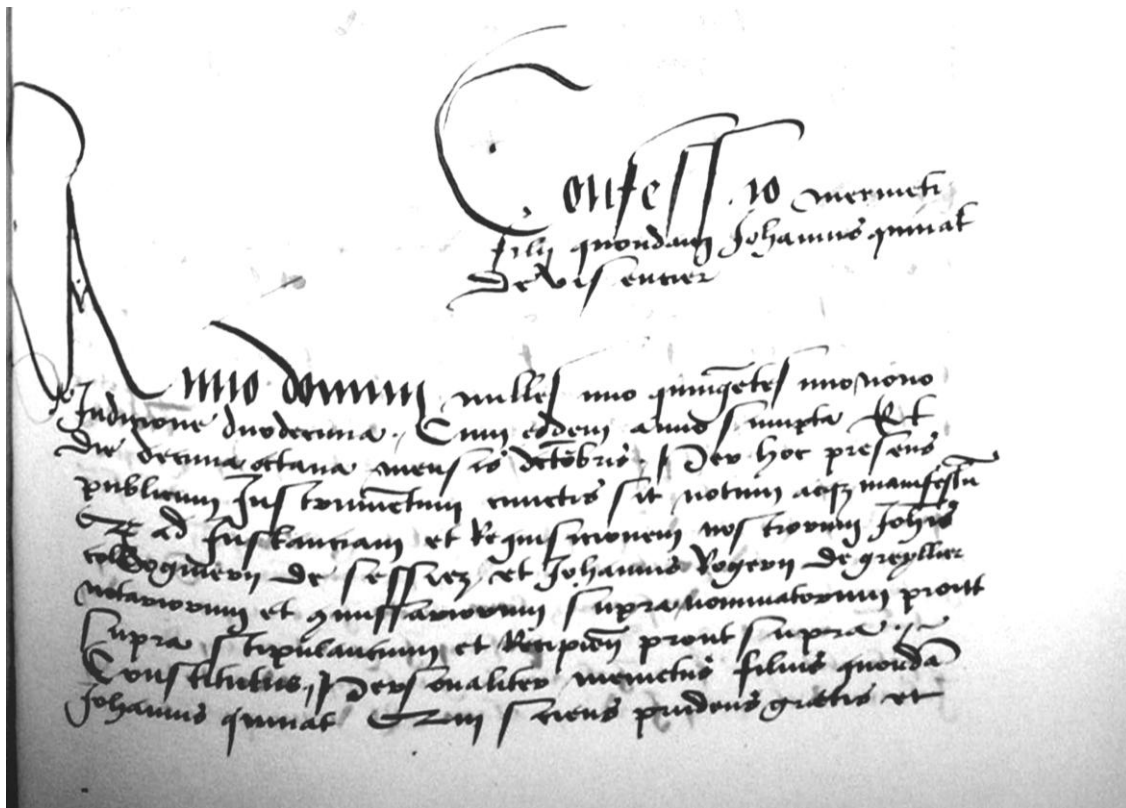 Confessio mermeti
filii quondam Johannis quinat
de vis encier
Anno domini millesimo quingētesimo nono
Indicione duodecima Cum eodem anno sumpta Et
die decima octava mensis octōbris Per hoc presens
publicum Instrumētum cunctis sit notum atqȝ manifestū
Qȝ ad Instanciam et Requisicionem nostrorum Johīs
de sessiez et Johannis Rogerii de greyllier
notariorum et 9missariorum supranominatorum prout
supra stipulancium et Recipieñ prout supra
Constitutus Personaliter mermetus filius quondā
Johannis quinat Qui sciens prudens gratis et